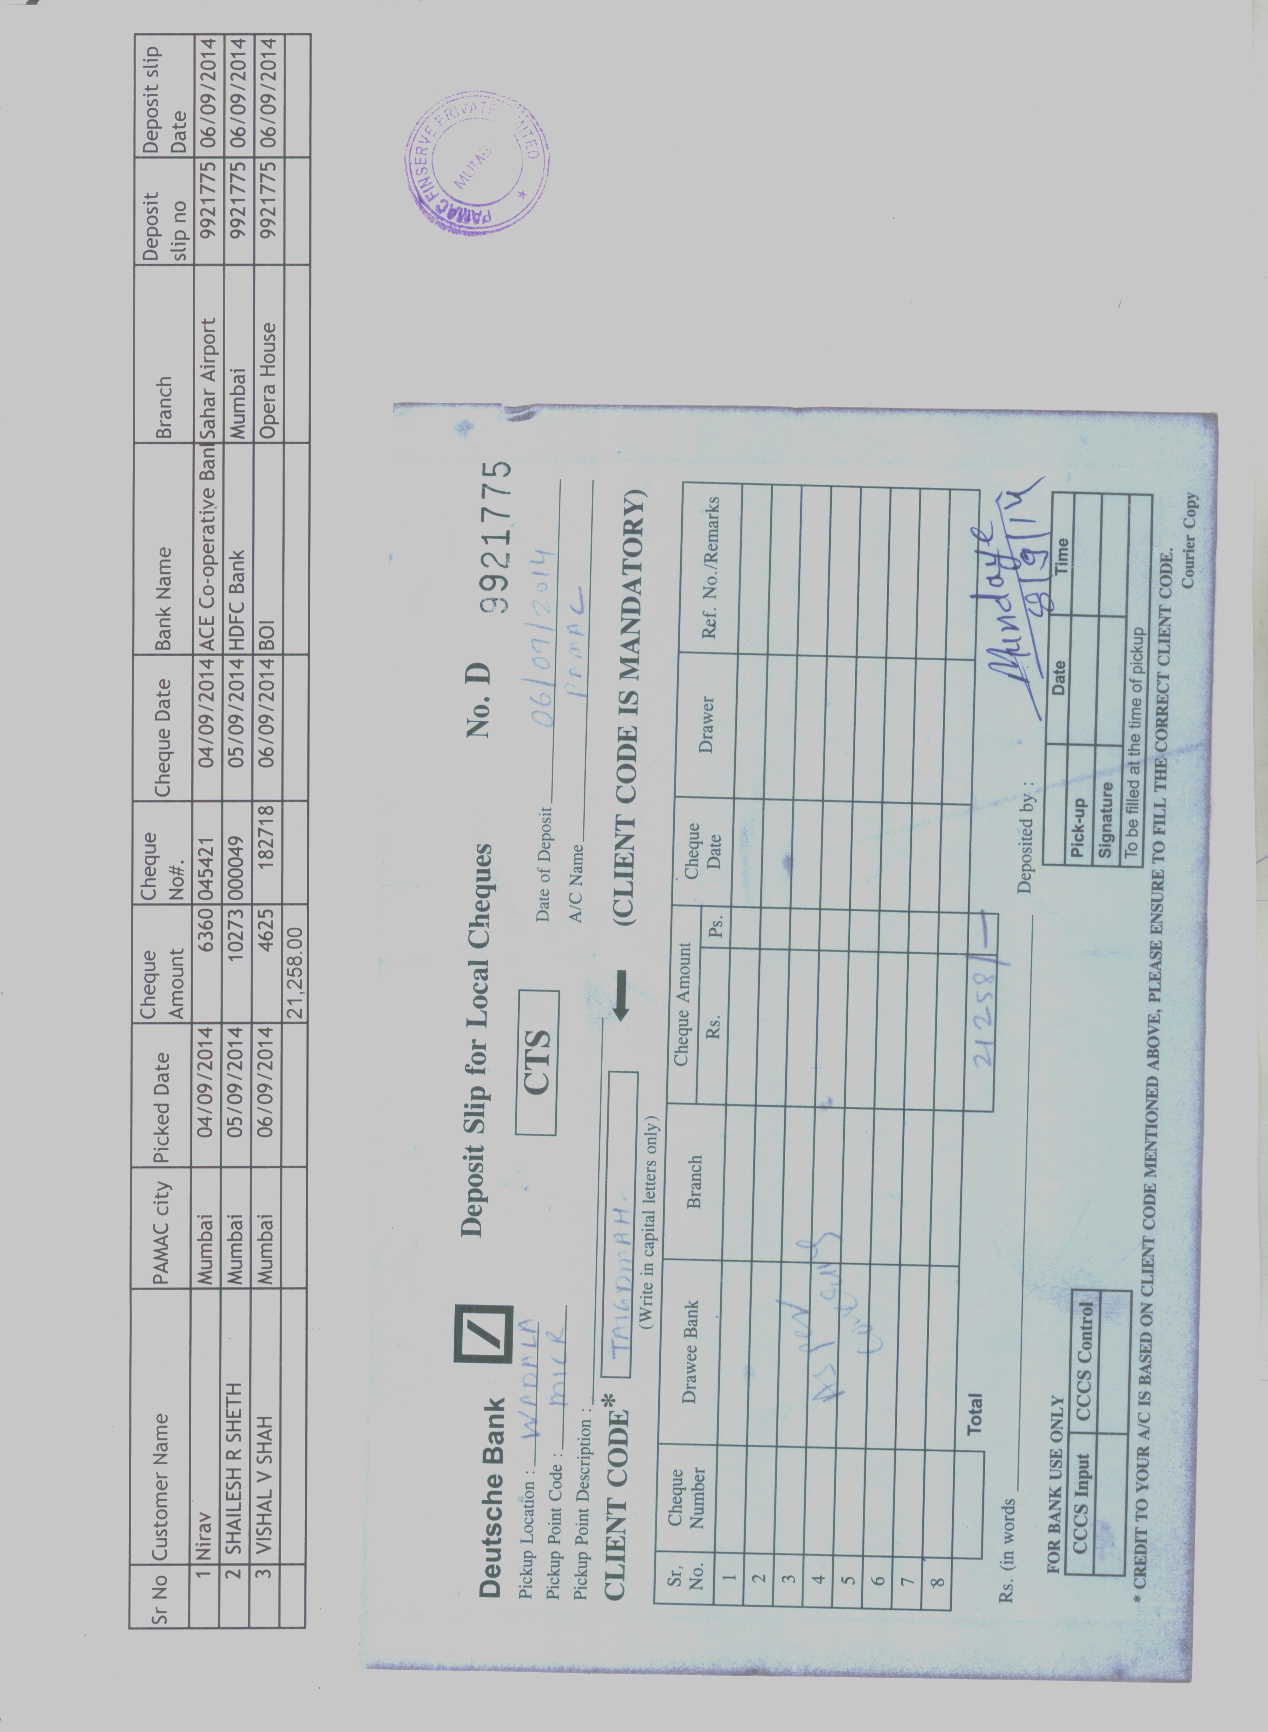 Sr No Customer Name PAMAC city Picked Date Cheque Amount Cheque No#. Cheque Date Bank Name Branch Deposit slip no Deposit slip Date
1 Nirav Mumbai 04/09/2014 6360 045421 04/09/2014 ACE Co-operative Bank Sahar Airport 9921775 06/09/2014
2 SHAILESH R SHETH Mumbai 05/09/2014 10273 000049 05/09/2014 HDFC Bank Mumbai 9921775 06/09/2014
3 VISHAL V SHAH Mumbai 06/09/2014 4625 182718 06/09/2014 BOI Opera House 9921775 06/09/2014
21,258.00
PAMAC FINSERVE PRIVATE LIMITED
Deutsche Bank Deposit Slip for Local Cheques No. D 9921775
Pickup Location : WADALA CTS Date of Deposit 06/09/2014
Pickup Point Code : MICR A/C Name PAMAC
Pickup Point Description :
CLIENT CODE* (CLIENT CODE IS MANDATORY)
(Write in capital letters only)
Sr. No. Cheque Number Drawee Bank Branch Cheque Amount Cheque Date Drawer Ref. No./Remarks
Rs. Ps.
1
2
3
4 As per
5
6
7
8
Total 21258/-
Rs. (in words Deposited by :
8/9/14
FOR BANK USE ONLY Date Time
CCCS Input CCCS Control Pick-up
Signature
To be filled at the time of pickup
* CREDIT TO YOUR A/C IS BASED ON CLIENT CODE MENTIONED ABOVE, PLEASE ENSURE TO FILL THE CORRECT CLIENT CODE.
Courier Copy